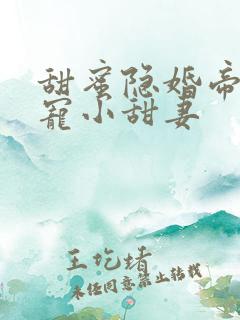 甜蜜隐婚帝
宠小甜妻
王圪堵
未经同意禁止转载